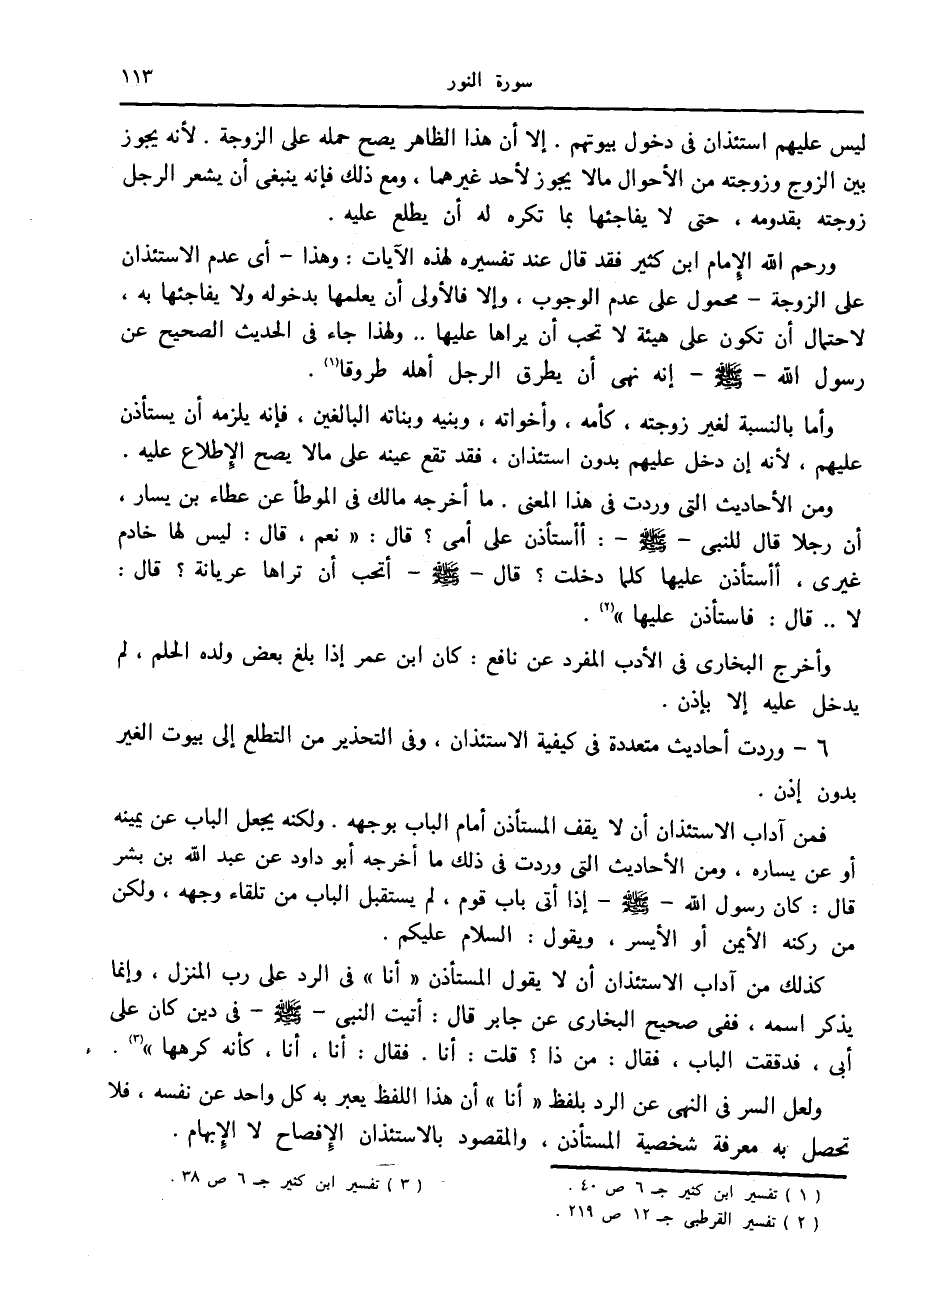 سورة النور ١١٣
ليس عليهم استئذان فى دخول بيوتهم . إلا أن هذا الظاهر يصح حمله على الزوجة . لأنه يجوز
بين الزوج وزوجته من الأحوال مالا يجوز لأحد غيرهما ، ومع ذلك فإنه ينبغى أن يشعر الرجل
زوجته بقدومه ، حتى لا يفاجئها بما تكره له أن يطلع عليه .
ورحم الله الإمام ابن كثير فقد قال عند تفسيره لهذه الآيات : وهذا – أى عدم الاستئذان
على الزوجة – محمول على عدم الوجوب ، وإلا فالأولى أن يعلمها بدخوله ولا يفاجئها به ،
لاحتمال أن تكون على هيئة لا تحب أن يراها عليها .. ولهذا جاء فى الحديث الصحيح عن
رسول الله – ﷺ – إنه نهى أن يطرق الرجل أهله طروقا(١) .
وأما بالنسبة لغير زوجته ، كأمه ، وأخواته ، وبنيه وبناته البالغين ، فإنه يلزمه أن يستأذن
عليهم ، لأنه إن دخل عليهم بدون استئذان ، فقد تقع عينه على مالا يصح الإطلاع عليه .
ومن الأحاديث التى وردت فى هذا المعنى . ما أخرجه مالك فى الموطأ عن عطاء بن يسار ،
أن رجلا قال للنبى – ﷺ – : أأستأذن على أمى ؟ قال : « نعم ، قال : ليس لها خادم
غيرى ، أأستأذن عليها كلما دخلت ؟ قال – ﷺ – أتحب أن تراها عريانة ؟ قال :
لا .. قال : فاستأذن عليها »(٢) .
وأخرج البخارى فى الأدب المفرد عن نافع : كان ابن عمر إذا بلغ بعض ولده الحلم ، لم
يدخل عليه إلا بإذن .
٦ – وردت أحاديث متعددة فى كيفية الاستئذان ، وفى التحذير من التطلع إلى بيوت الغير
بدون إذن .
فمن آداب الاستئذان أن لا يقف المستأذن أمام الباب بوجهه . ولكنه يجعل الباب عن يمينه
أو عن يساره ، ومن الأحاديث التى وردت فى ذلك ما أخرجه أبو داود عن عبد الله بن بشر
قال : كان رسول الله – ﷺ – إذا أتى باب قوم ، لم يستقبل الباب من تلقاء وجهه ، ولكن
من ركنه الأيمن أو الأيسر ، ويقول : السلام عليكم .
كذلك من آداب الاستئذان أن لا يقول المستأذن « أنا » فى الرد على رب المنزل ، وإنما
يذكر اسمه ، ففى صحيح البخارى عن جابر قال : أتيت النبى – ﷺ – فى دين كان على
أبى ، فدققت الباب ، فقال : من ذا ؟ قلت : أنا . فقال : أنا ، أنا ، كأنه كرهها »(٣) .
ولعل السر فى النهى عن الرد بلفظ « أنا » أن هذا اللفظ يعبر به كل واحد عن نفسه ، فلا
تحصل به معرفة شخصية المستأذن ، والمقصود بالاستئذان الإفصاح لا الإبهام .
( ١ ) تفسير ابن كثير جـ ٦ ص ٤٠ .
( ٢ ) تفسير القرطبى جـ ١٢ ص ٢١٩ .
( ٣ ) تفسير ابن كثير جـ ٦ ص ٣٨ .